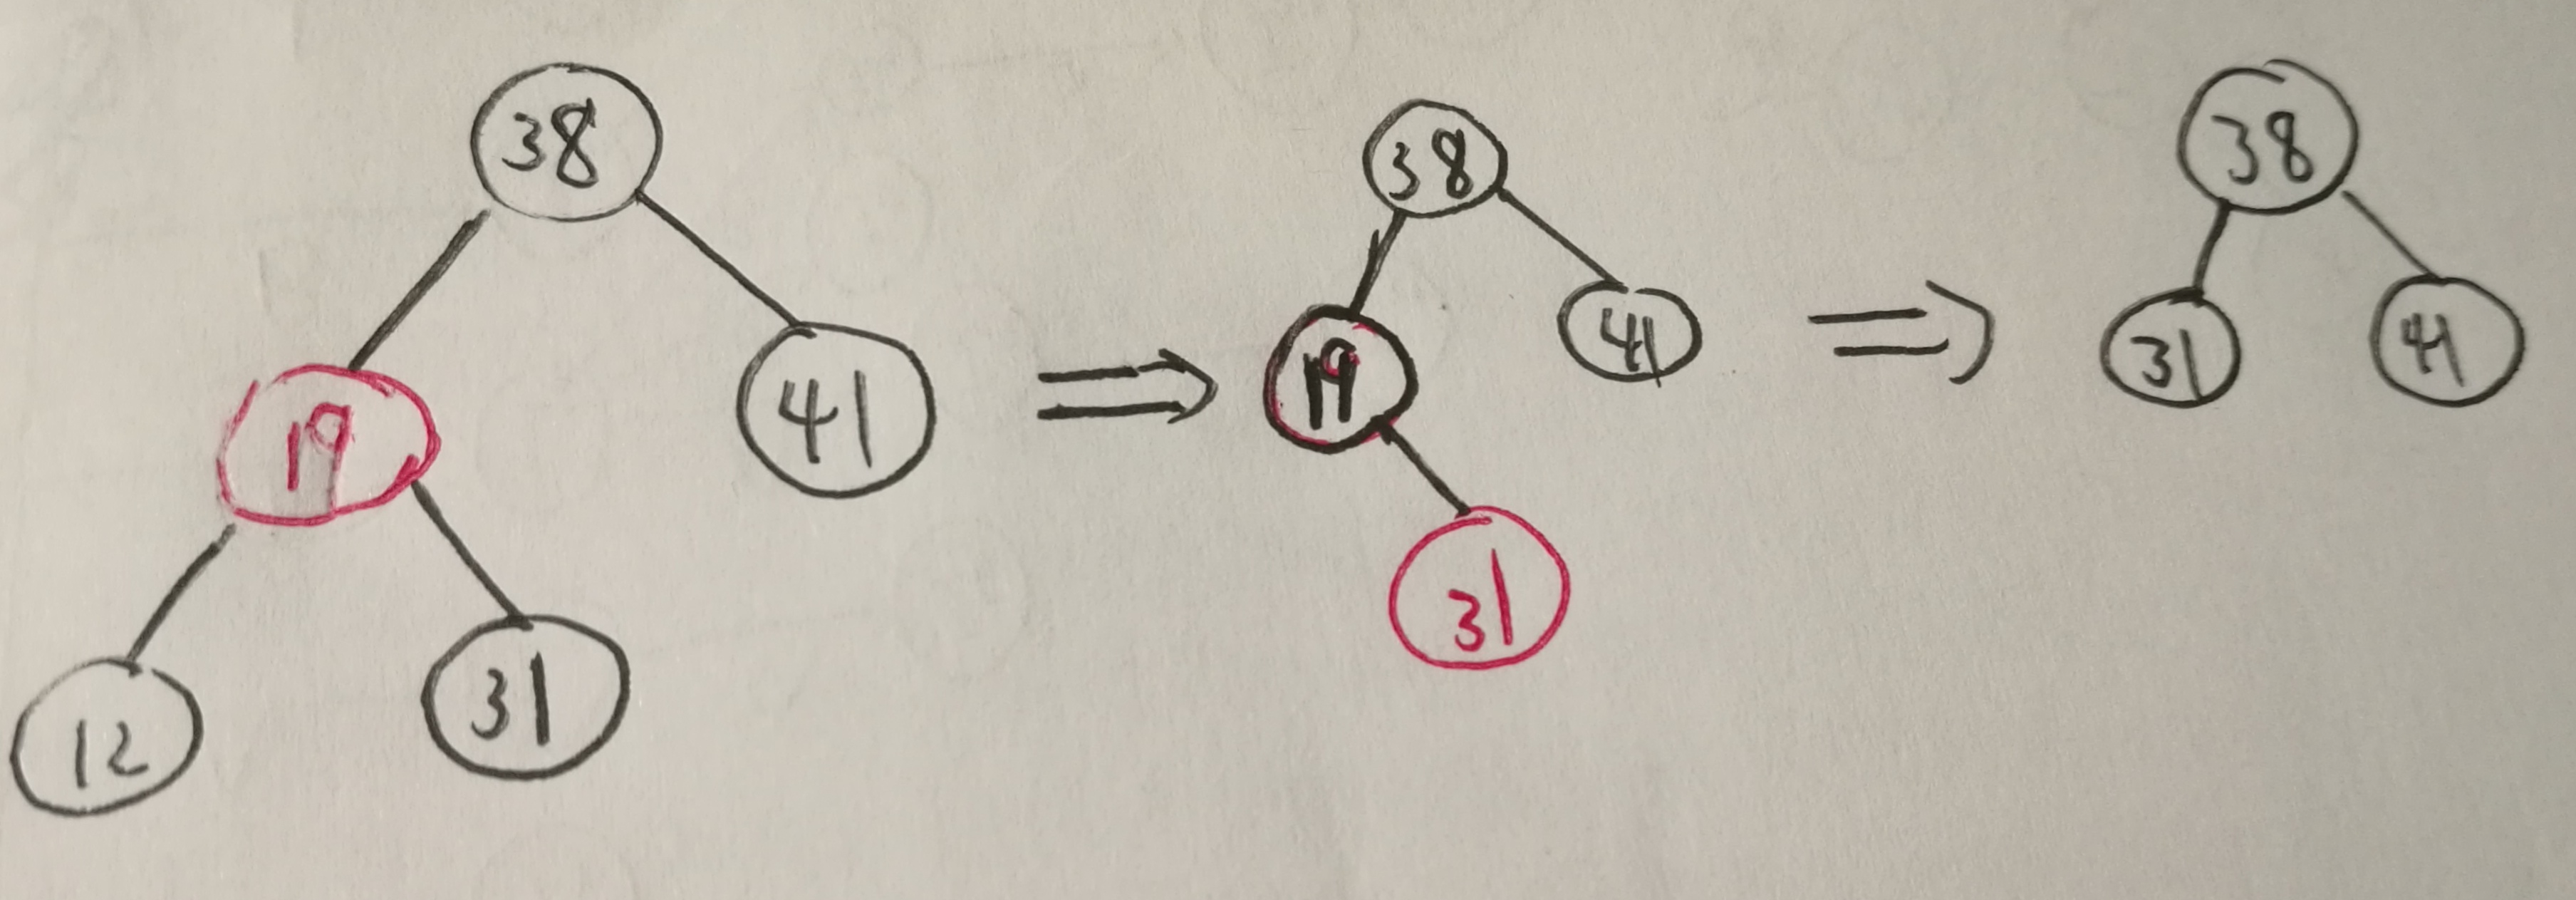 38
19
41
12
31
38
19
41
31
38
31
41